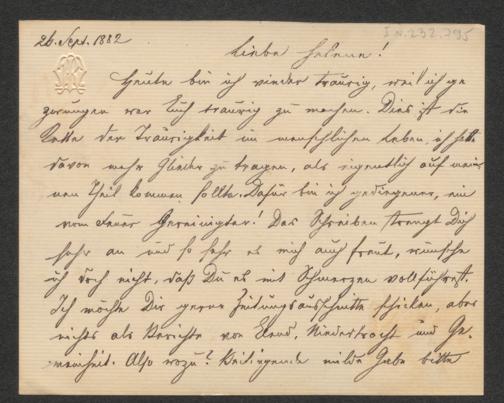 26. Sept. 1882
I.N. 232.795
Liebe Helene!
Heute bin ich wieder traurig, weil ich ge
zwungen war Euch traurig zu machen. Dies ist die
Kette der Traurigkeit im menschlichen Leben, ich habe
davon mehr Glieder zu tragen, als eigentlich auf mei
nen Theil kommen sollte. Dafür bin ich gediegener, ein
vom Feuer Gereinigter! Das Schreiben strengt Dich
sehr an und so sehr es mich auch freut, wünsche
ich doch nicht, daß Du es mit Schmerzen vollführest.
Ich möchte Dir gerne Zeitungsausschnitte schicken, aber
nichts als Berichte von Elend, Niedertracht und Ge-
meinheit. Also wozu? Beiliegende milde Gabe bitte